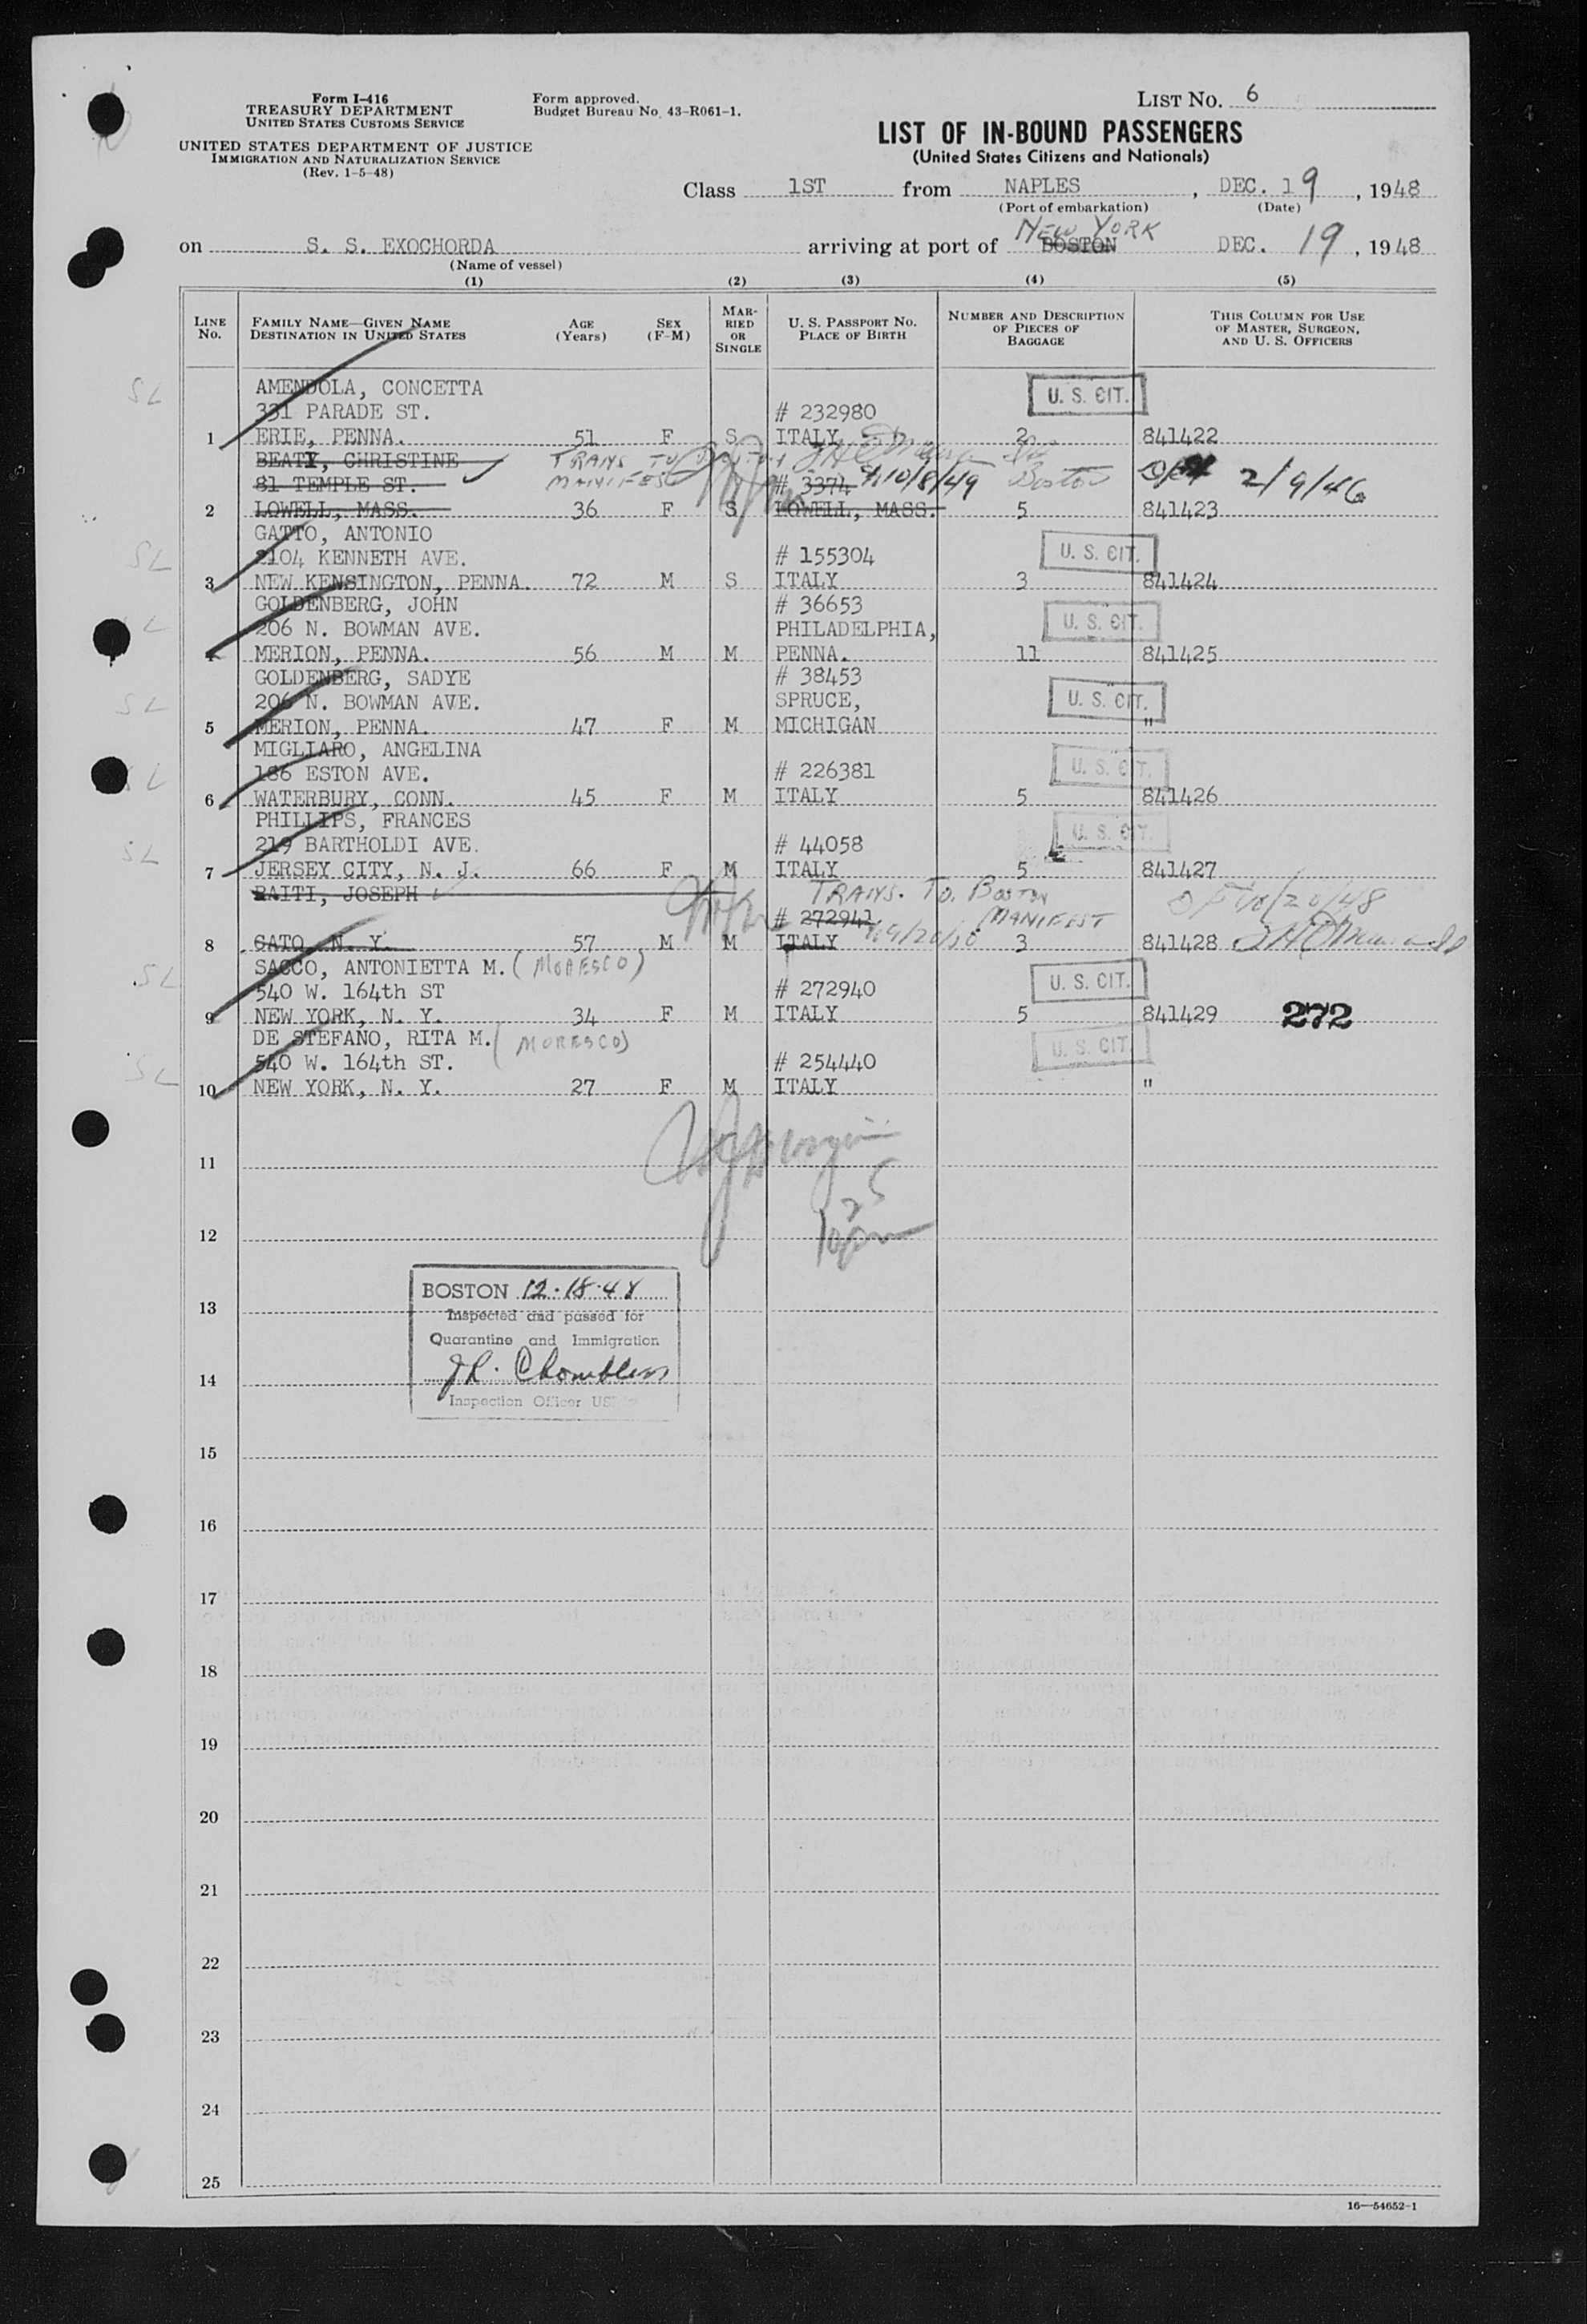 Form I-416
TREASURY DEPARTMENT
UNITED STATES CUSTOMS SERVICE
UNITED STATES DEPARTMENT OF JUSTICE
IMMIGRATION AND NATURALIZATION SERVICE
(Rev. 1-5-48)
Form approved.
Budget Bureau No. 43-R061-1.
LIST NO. 6
LIST OF IN-BOUND PASSENGERS
(United States Citizens and Nationals)
Class 1ST from NAPLES, DEC. 19, 1948
(Port of embarkation) (Date)
NEW YORK
on S. S. EXOCHORDA arriving at port of BOSTON DEC. 19, 1948
(Name of vessel)
(1) (2) (3) (4) (5)
LINE NO.
FAMILY NAME—GIVEN NAME
DESTINATION IN UNITED STATES
AGE (Years)
SEX (F-M)
MARRIED OR SINGLE
U. S. PASSPORT NO.
PLACE OF BIRTH
NUMBER AND DESCRIPTION OF PIECES OF BAGGAGE
THIS COLUMN FOR USE OF MASTER, SURGEON, AND U. S. OFFICERS
SL AMENDOLA, CONCETTA U. S. CIT.
331 PARADE ST. # 232980
1 ERIE, PENNA. 51 F S ITALY 2 841422
BEATY, CHRISTINE TRANS TO
81 TEMPLE ST. MANIFEST # 3374 10/8/49 Boston 2/9/46
2 LOWELL, MASS. 36 F S LOWELL, MASS. 5 841423
GATTO, ANTONIO
SL 2104 KENNETH AVE. # 155304 U. S. CIT.
3 NEW KENSINGTON, PENNA. 72 M S ITALY 3 841424
GOLDENBERG, JOHN # 36653
L 206 N. BOWMAN AVE. PHILADELPHIA, U. S. CIT.
4 MERION, PENNA. 56 M M PENNA. 11 841425
GOLDENBERG, SADYE # 38453
SL 206 N. BOWMAN AVE. SPRUCE, U. S. CIT.
5 MERION, PENNA. 47 F M MICHIGAN "
MIGLIARO, ANGELINA
L 186 ESTON AVE. # 226381 U. S. CIT.
6 WATERBURY, CONN. 45 F M ITALY 5 841426
PHILLIPS, FRANCES U. S. CIT.
SL 219 BARTHOLDI AVE. # 44058
7 JERSEY CITY, N. J. 66 F M ITALY 5 841427
RAITI, JOSEPH TRANS. TO. BOSTON
# 272941 MANIFEST
8 CATO N. Y. 57 M M ITALY 3 841428
SL SACCO, ANTONIETTA M. (MORESCO)
540 W. 164th ST # 272940 U. S. CIT.
9 NEW YORK, N. Y. 34 F M ITALY 5 841429 272
DE STEFANO, RITA M. (MORESCO) U. S. CIT.
SL 540 W. 164th ST. # 254440
10 NEW YORK, N. Y. 27 F M ITALY "
11
12
BOSTON 12-18-48
13
Inspected and passed for
Quarantine and Immigration
14
Inspection Officer
15
16
17
18
19
20
21
22
23
24
25
16—54652-1